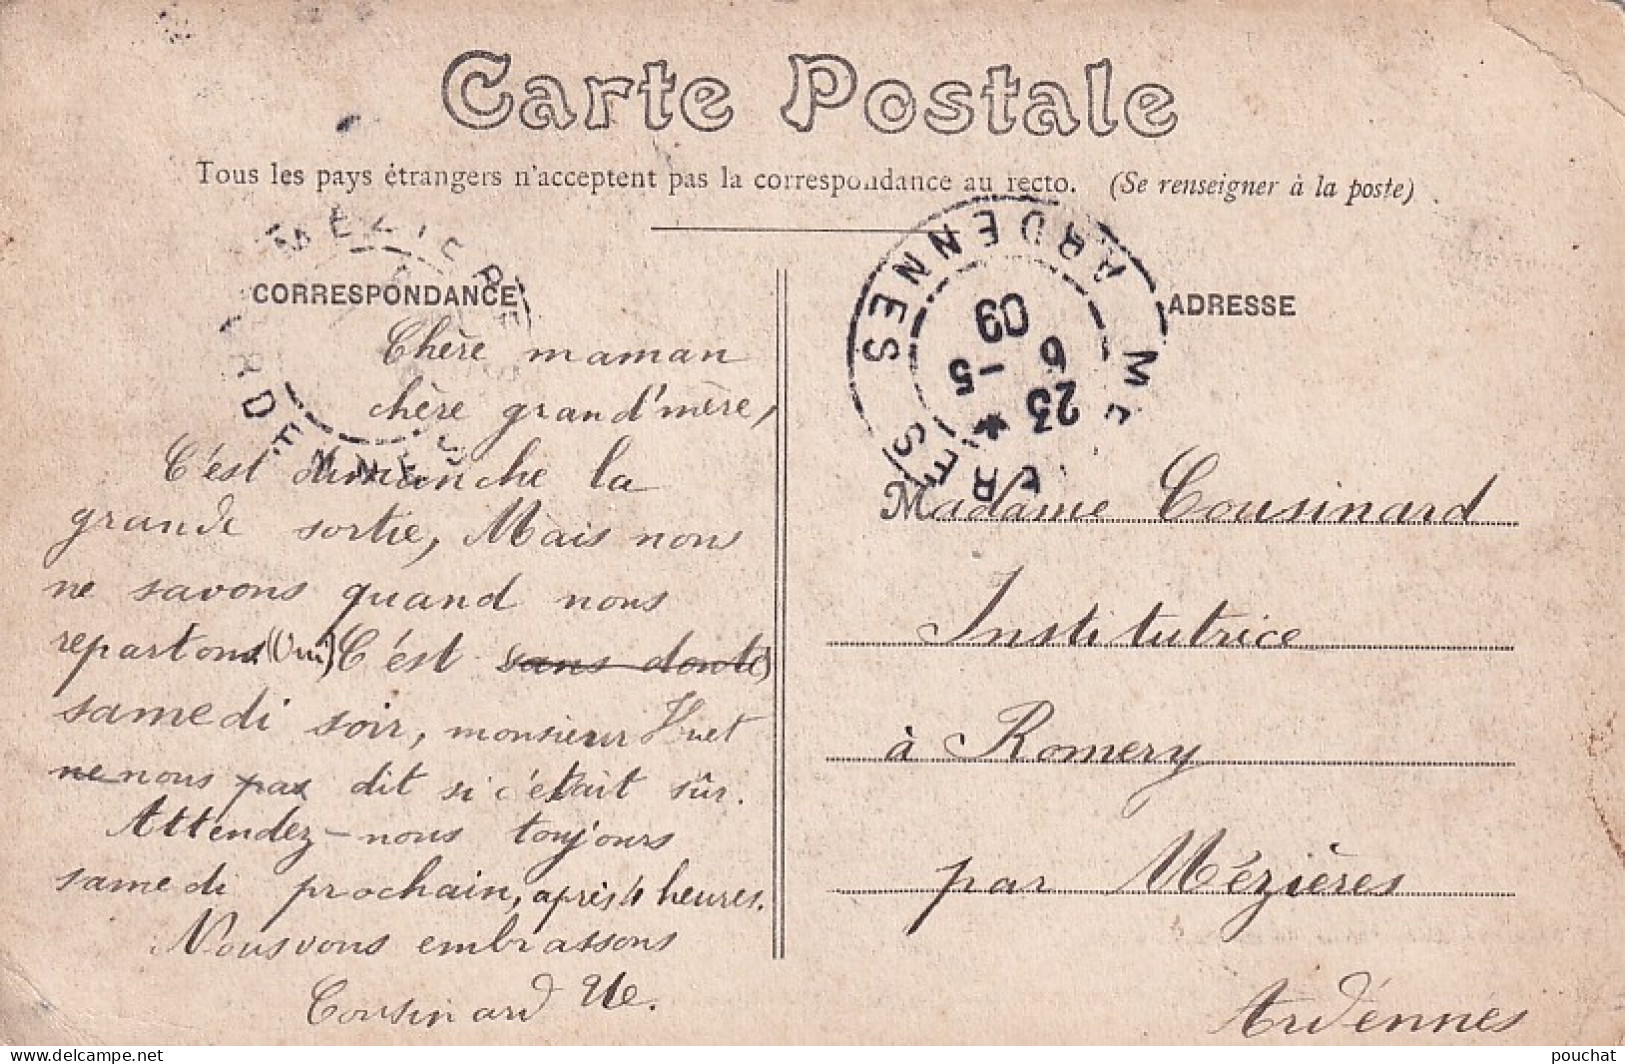 Carte Postale
Tous les pays étrangers n'acceptent pas la correspondance au recto. (Se renseigner à la poste)
CORRESPONDANCE
Chère maman
chère grand'mère,
C'est dimanche la
grande sortie, Mais nous
ne savons quand nous
repartons (Oui) C'est sans doute
samedi soir, monsieur Huet
ne nous pas dit si c'était sûr.
Attendez-nous toujours
samedi prochain, après 4 heures.
Nous vous embrassons
Cousinard
ADRESSE
MEZIERES
ARDENNES
ARDENNES
23 - 5
09
Madame Cousinard
Institutrice
à Romery
par Mézières
Ardennes
pouchat